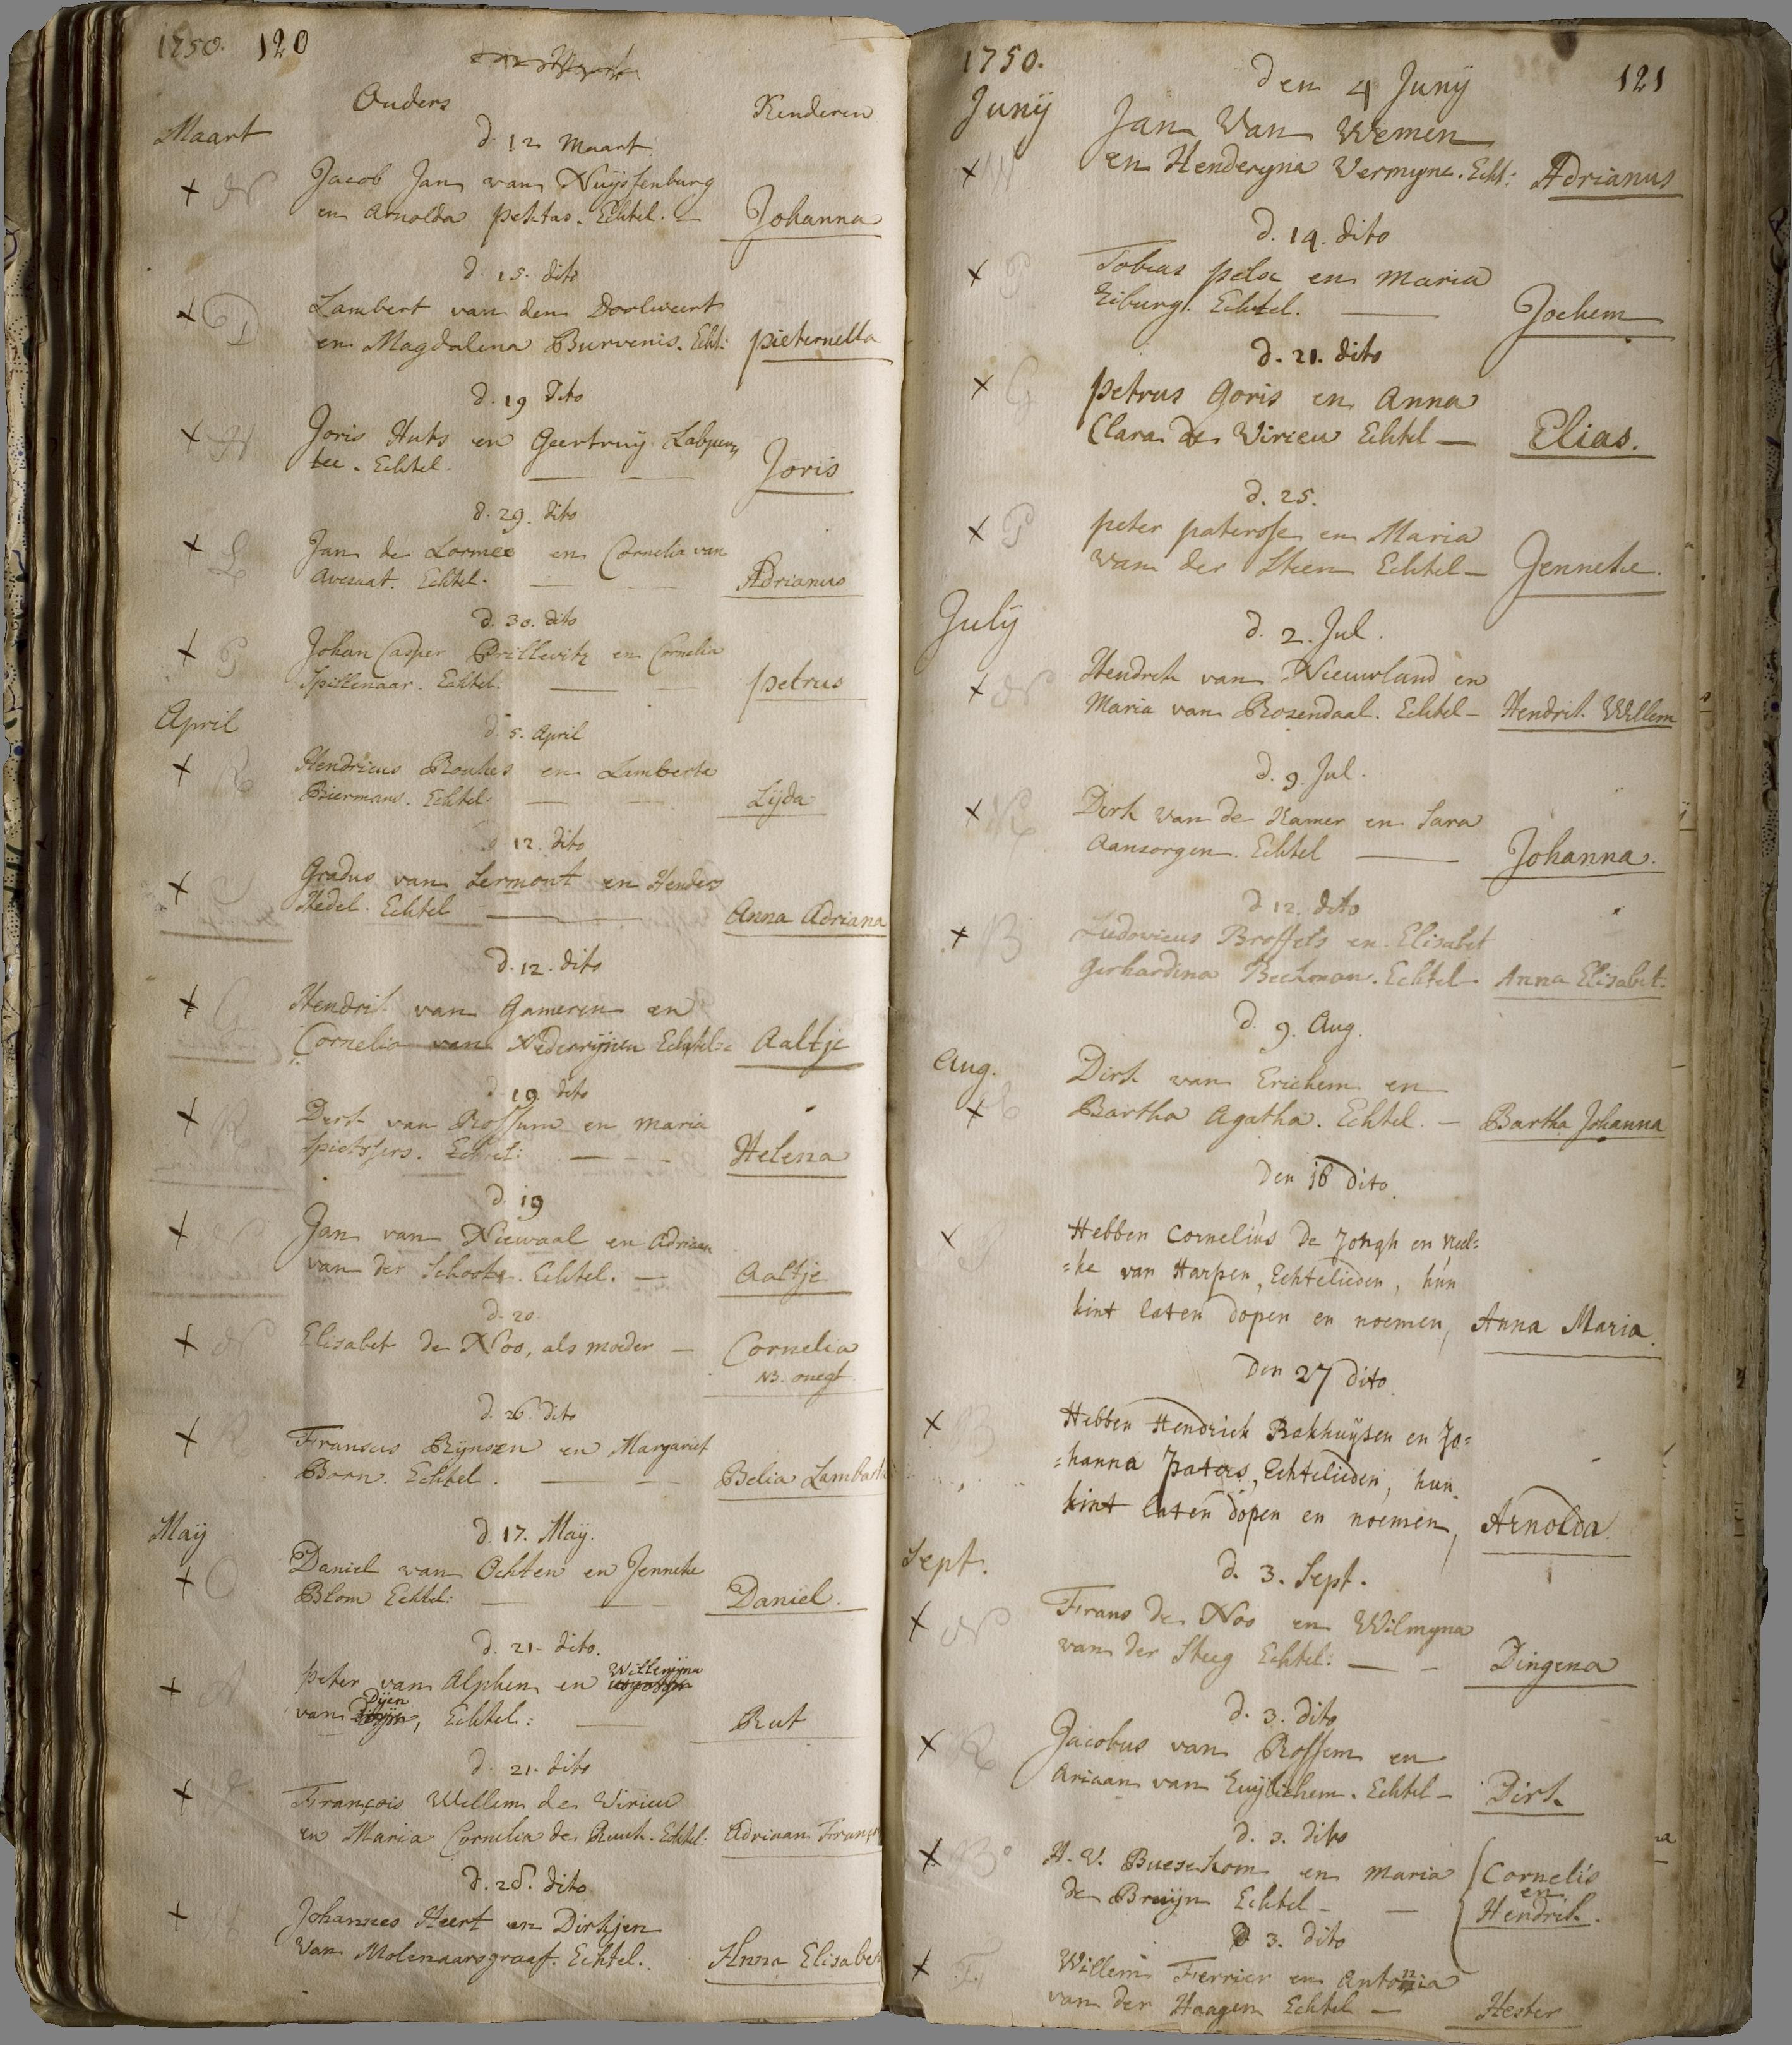 1750. 120
Ouders Kinderen
Maart
d. 12 Maart.
+ N Jacob Jan van Nuijssenburg
en Arnolda pektas. Echtel. — Johanna
d. 15. dito
+ D Lambert van den Doolweert
en Magdalena Burvenis. Echt: pieternella
d. 19 Dito
+ H Joris Huts en Geertruij Labpun„
tee. Echtel. — — Joris
d. 29. dito
+ L Jan de Lormeé en Cornelia van
Avesaat. Echtel. — — Adrianus
d. 30. dito
+ P Johan Casper Brillevitz en Cornelia
Spillenaar. Echtel. — — petrus
April
d. 5. April
+ R Hendricus Roukes en Lamberta
Biermans. Echtel. — — Lijda
d. 12. dito
+ Gradus van Lermont en Hender
Hedel. Echtel — — Anna Adriana
d. 12. dito
+ G Hendrik van Gameren en
Cornelia van Nederrijnen Echtel: Aaltje
d. 19. dito
+ R Derk van Rossum en Maria
Spietssers. Echtel: — — Helena
d. 19
+ N Jan van Niewaal en Adriaan
van der Schoote. Echtel. — Aaltje
d. 20.
+ N Elisabet de Noo, als moeder — Cornelia
NB. onegt.
d. 26. dito
+ R Franscus Rijnszen en Margariet
Born. Echtel. — — Belia Lambarta
Maij
d. 17. Maij.
+ O Daniel van Ochten en Jenneke
Blom Echtel: — — Daniel.
d. 21. dito.
+ A peter van Alphen en Willemijna
van Dijen, Echtel: — Rut
d. 21. dito
+ François Willem de Virieu
en Maria Cornelia de Ruuk. Echtel: Adriaan Frans
d. 28. dito
+ Johannes Heert en Dirkjen
van Molenaarsgraaf. Echtel. Anna Elisabet
1750. 121
den 4 Junij
Junij
Jan Van Wemen
+ W en Henderyna Vermyne. Echt: Adrianus
d. 14. dito
+ P Tobias pelse en Maria
Eiburg. Echtel. — Jochem
d. 21. dito
+ G petrus Goris en Anna
Clara de Virieu Echtel — Elias.
d. 25.
+ P peter paterosse en Maria
van der Steen Echtel — Jenneke.
July
d. 2. Jul.
+ N Hendrik van Nieuwland en
Maria van Rozendaal. Echtel — Hendrik Willem
d. 9. Jul.
+ K Dirk van de Kamer en Sara
Aansorgen. Echtel — Johanna.
d. 12. dito
+ B Ludovicus Broffels en Elisabet
Gerhardina Beekman. Echtel — Anna Elisabet.
d. 9. Aug.
Aug.
+ E Dirk van Erichem en
Bartha Agatha. Echtel. — Bartha Johanna
Den 16 dito.
+ J Hebben Cornelius De Jongh en Neel=
=ke van Harpen, Echtelieden, hun
kint laten dopen en noemen, Anna Maria.
Den 27 dito.
+ B Hebben Hendrick Bakhuijsen en Jo=
=hanna Paters, Echtelieden, hun
kint laten dopen en noemen, Arnolda.
Sept.
d. 3. Sept.
+ N Frans de Noo en Wilmyna
van der Steeg Echtel: — — Dingena
d. 3. dito
+ R Jacobus van Rossem en
Ariaan van Euijlichem. Echtel — Dirk
d. 3. dito
+ B H. V. Buesekom en Maria Cornelis
en
de Bruijn Echtel — — Hendrik.
d 3. dito
+ F. Willem Ferrier en Antonia
van der Haagen Echtel — Hester